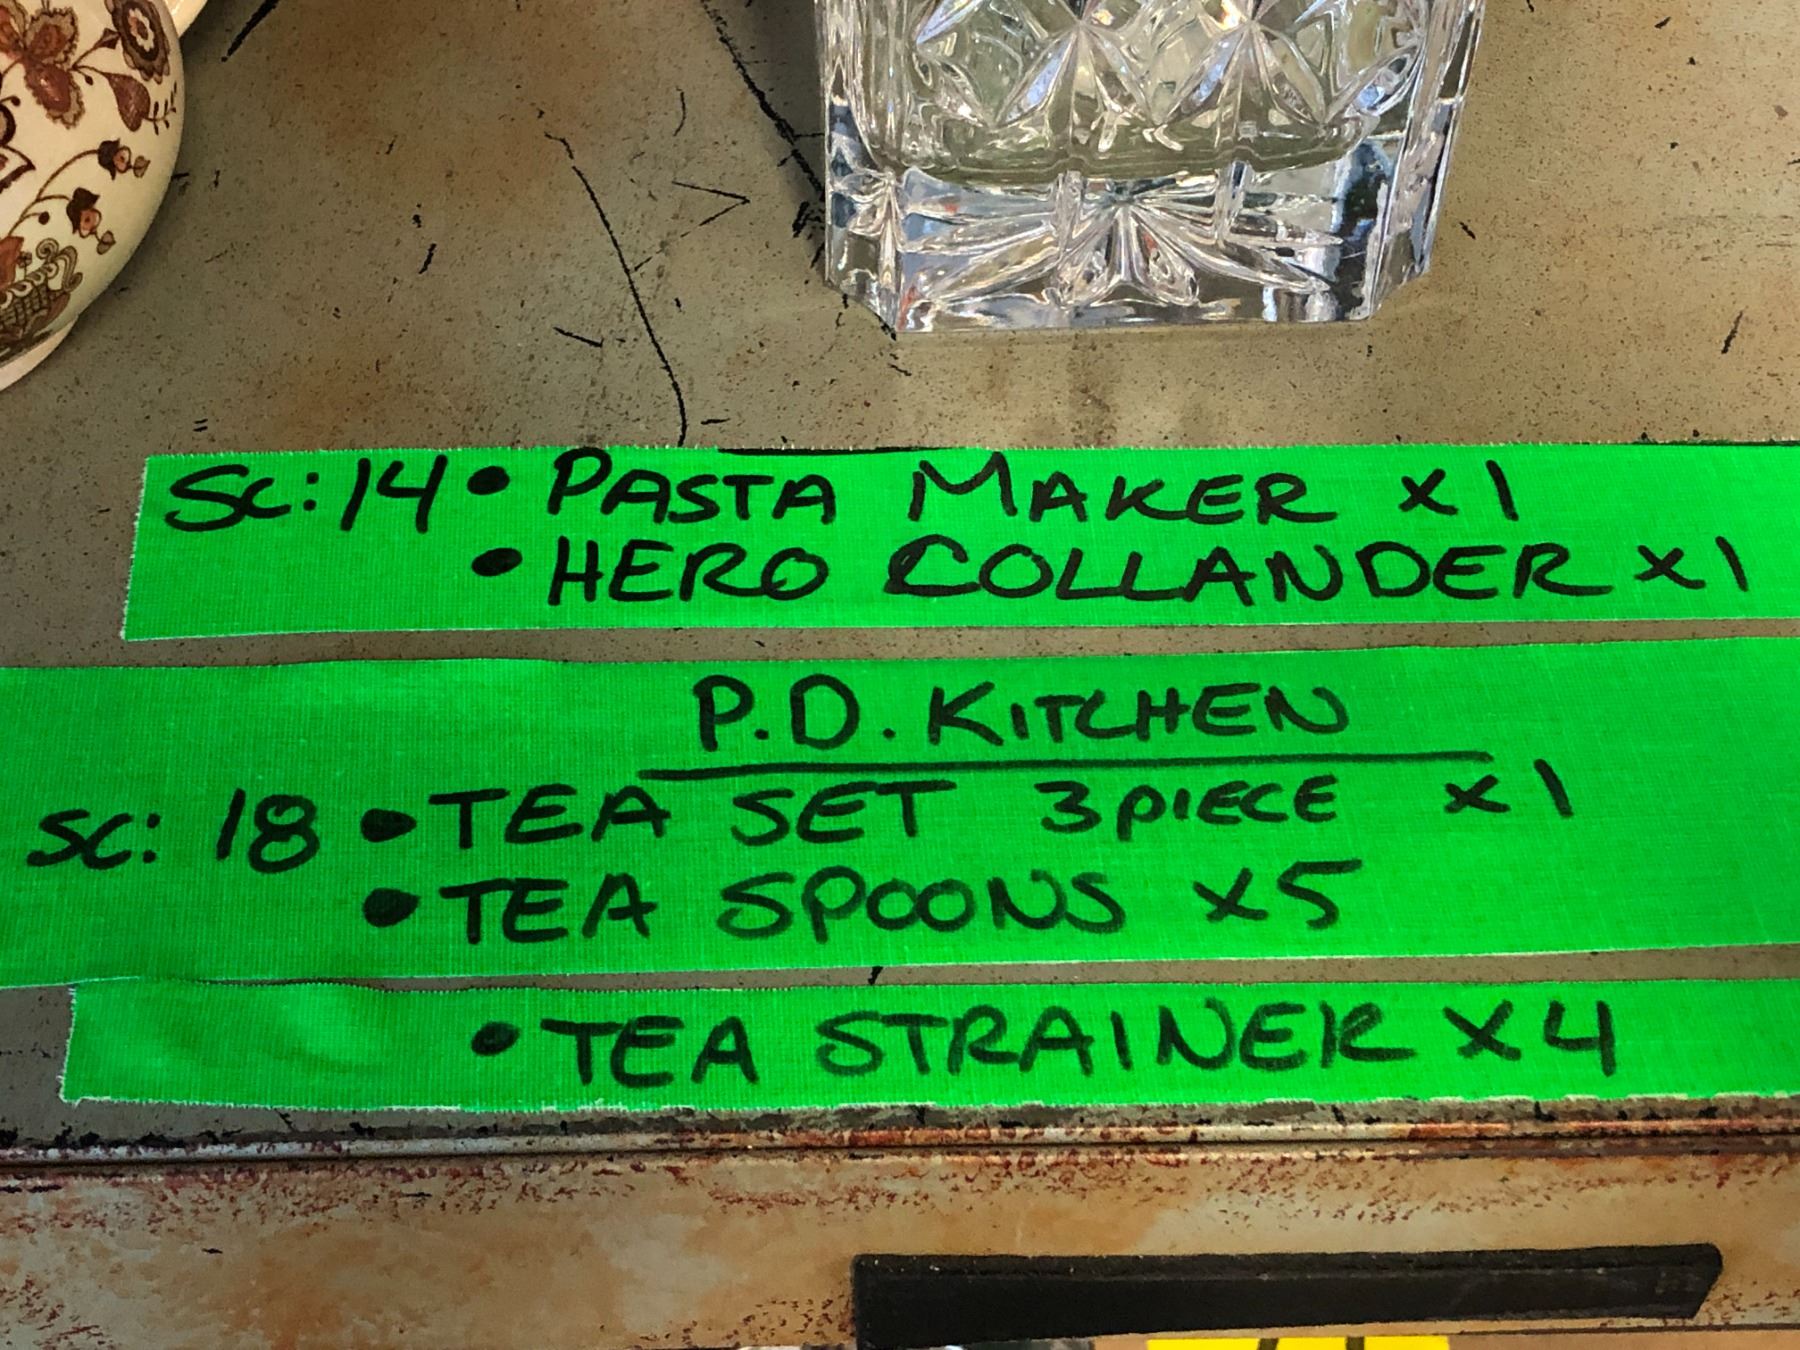 Sc: 14 • PASTA MAKER x 1
• HERO COLLANDER x 1
P.D. KITCHEN
SC: 18 • TEA SET 3 PIECE x 1
• TEA SPOONS x5
• TEA STRAINER x 4